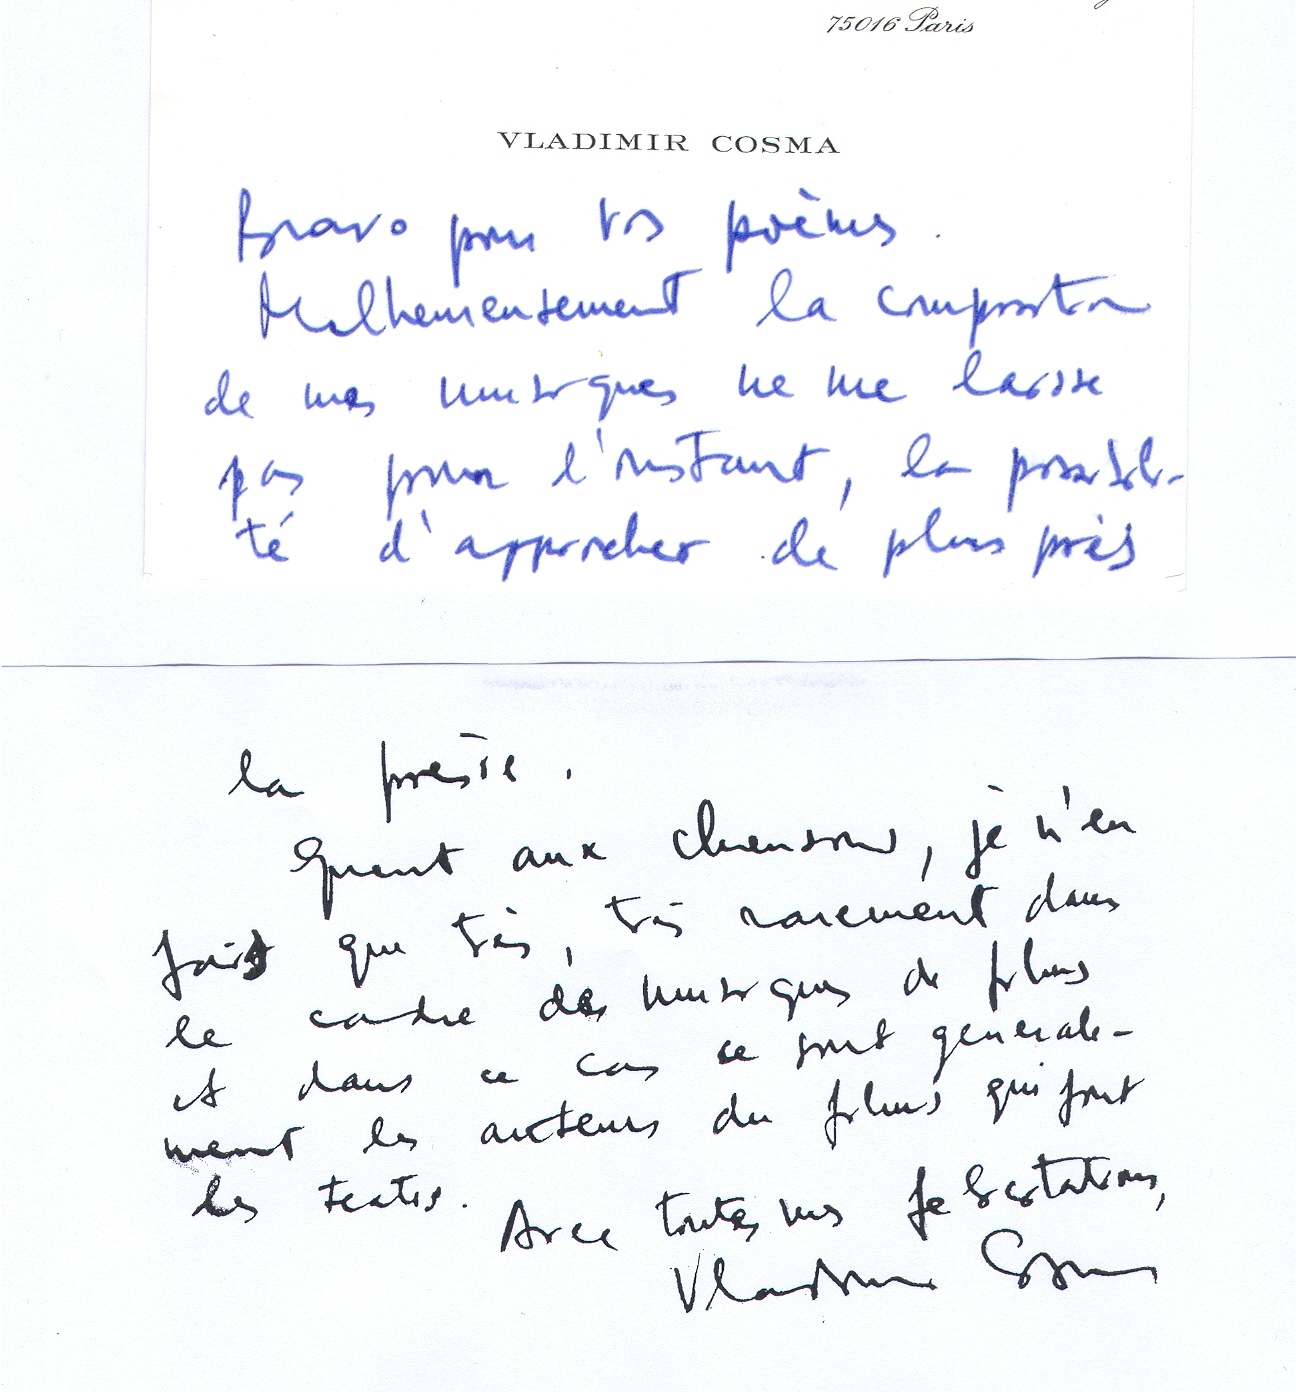 75016 Paris
VLADIMIR COSMA
Bravo pour vos poèmes.
Malheureusement la composition
de mes musiques ne me laisse
pas pour l'instant, la possibili-
té d'approcher de plus près
la poésie.
Quant aux chansons, je n'en
fais que très, très rarement dans
le cadre des musiques de films
et dans ce cas ce sont générale-
ment les auteurs du films qui font
les textes.
Avec toutes mes félicitations,
Vladimir Cosma